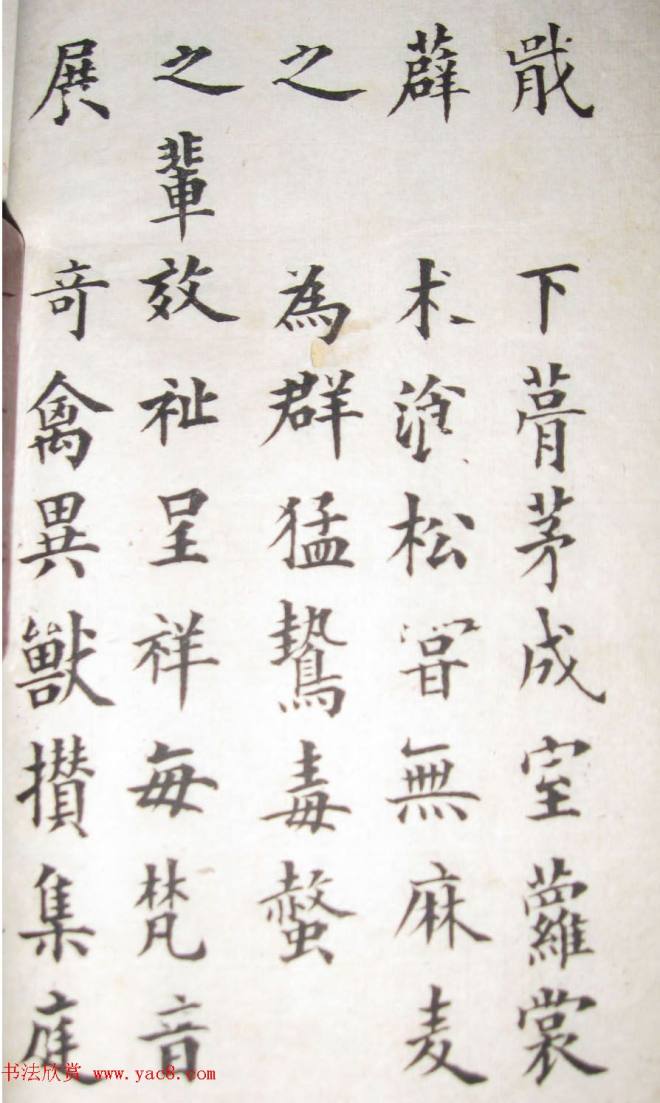 戢下葺茅成室蘿裳
薜术湌松無麻麦
之為群猛鷙毒螫
之輩效祉呈祥每梵音
展奇禽異獸攢集庭
书法欣赏 www.yac8.com